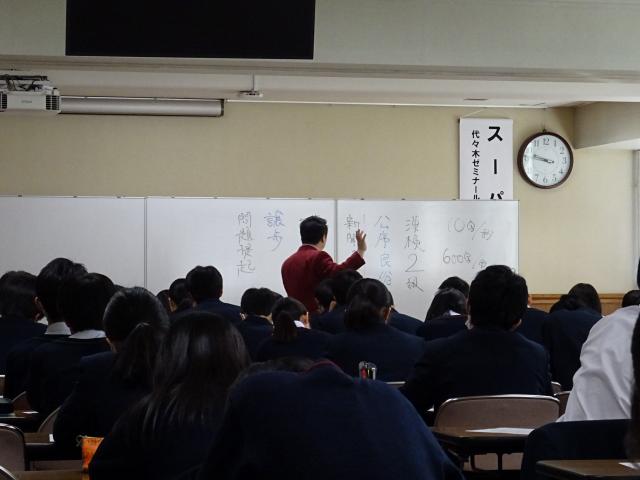 スーパ
代々木ゼミナール
10字/秒
600字/分
漢検2級
公序良俗
新聞
譲歩
問題提起